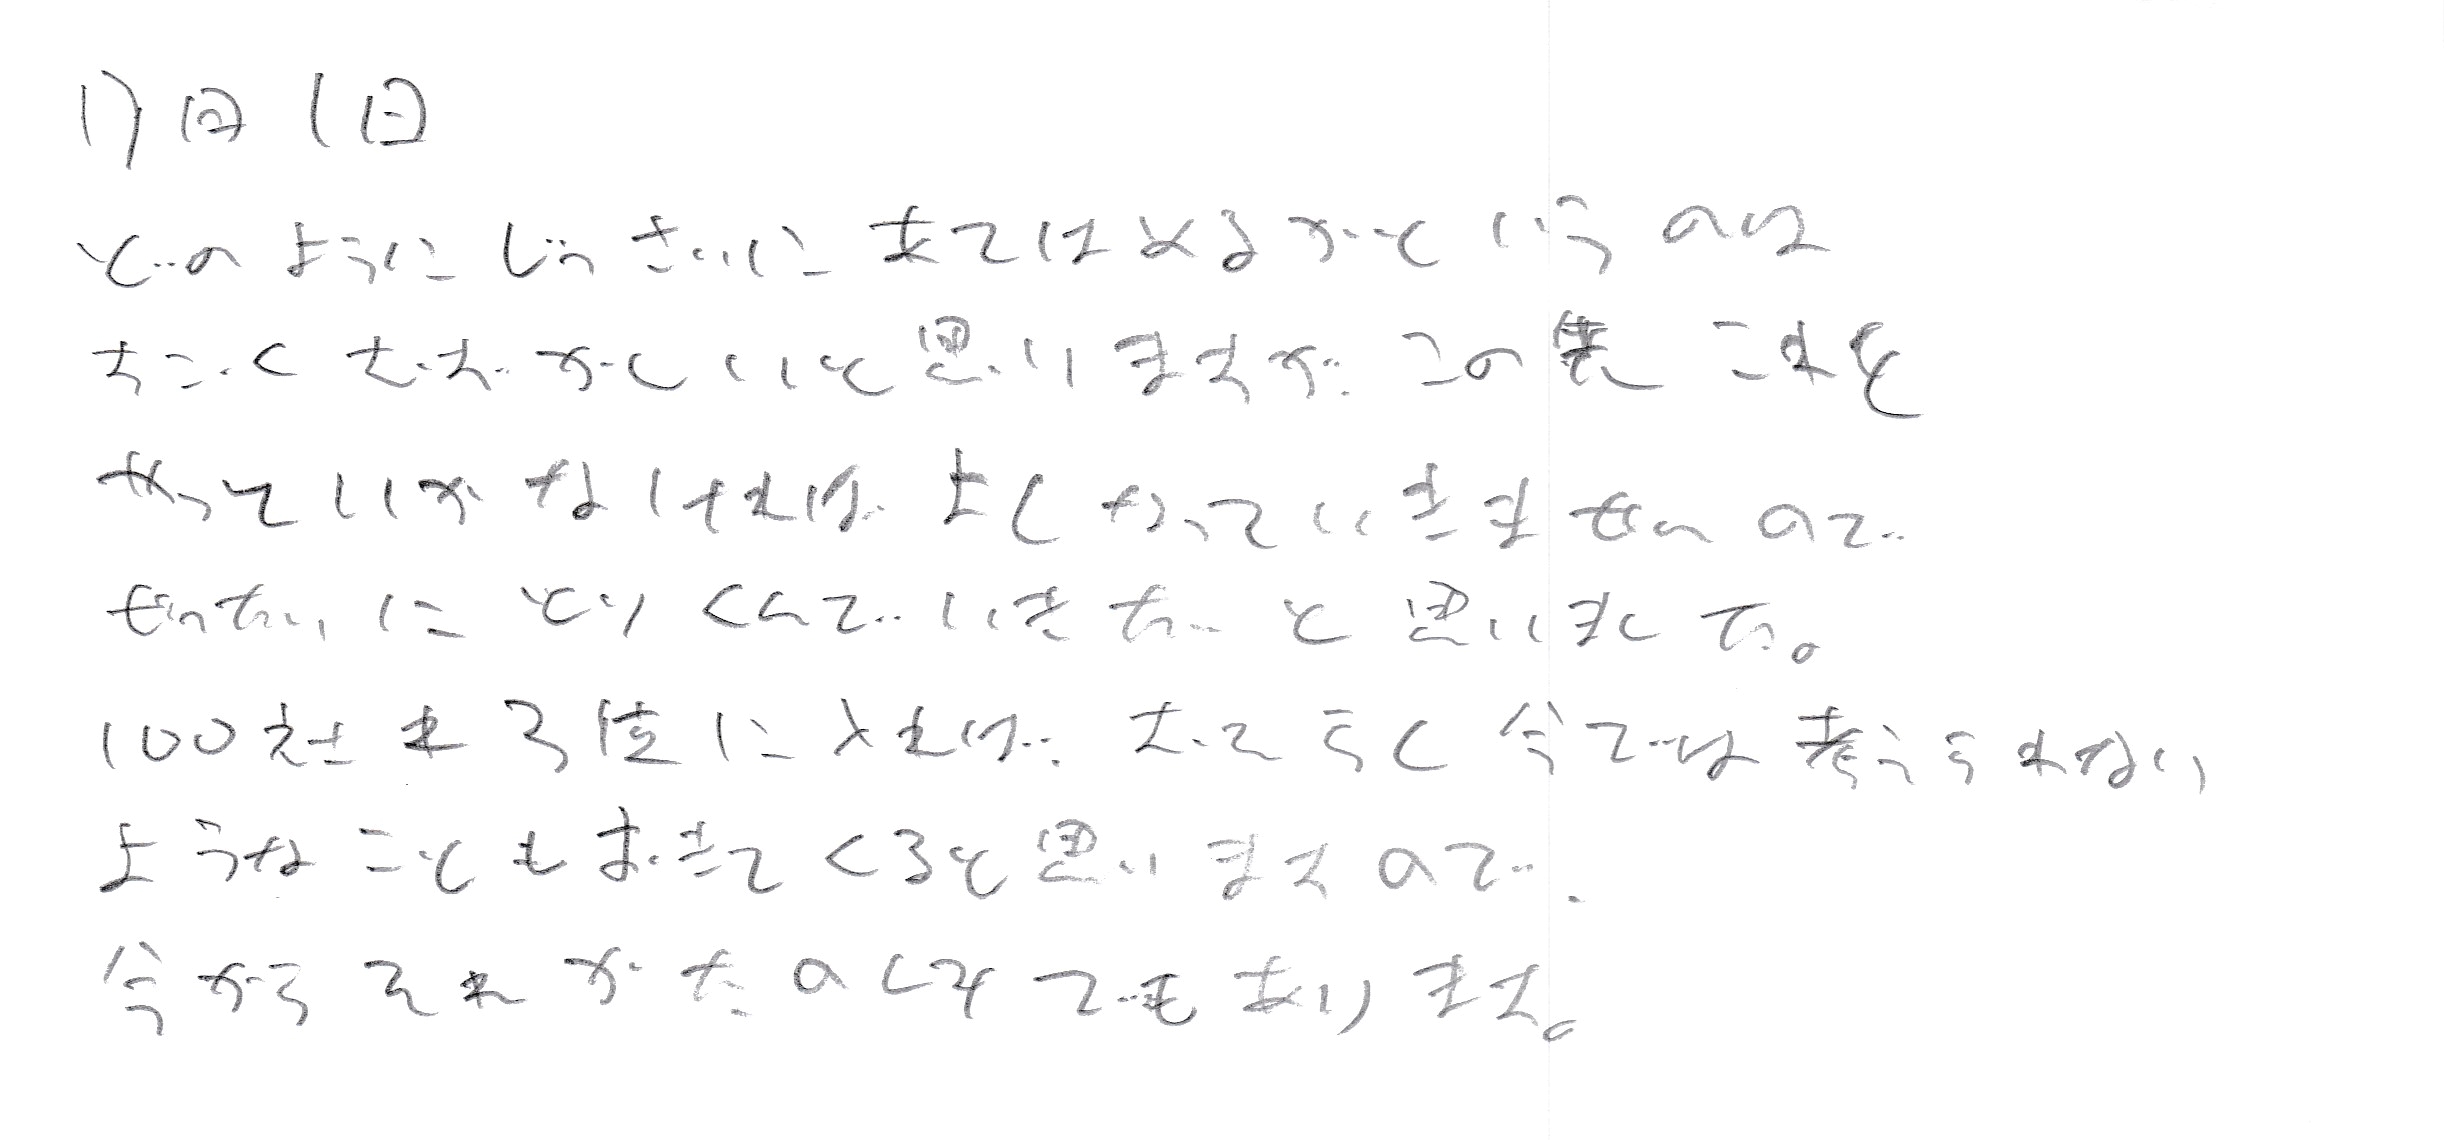 17回1日
どのようにじっさいにあてはめるかというのは
すごくむずかしいと思いますが、この先これを
やっていかなければよくなっていきませんので
ぜったいにとりくんでいきたいと思いました。
100社を3位に入れば、おそらく今では考えられない
ようなこともおきてくると思いますので、
今からそれがたのしみでもあります。